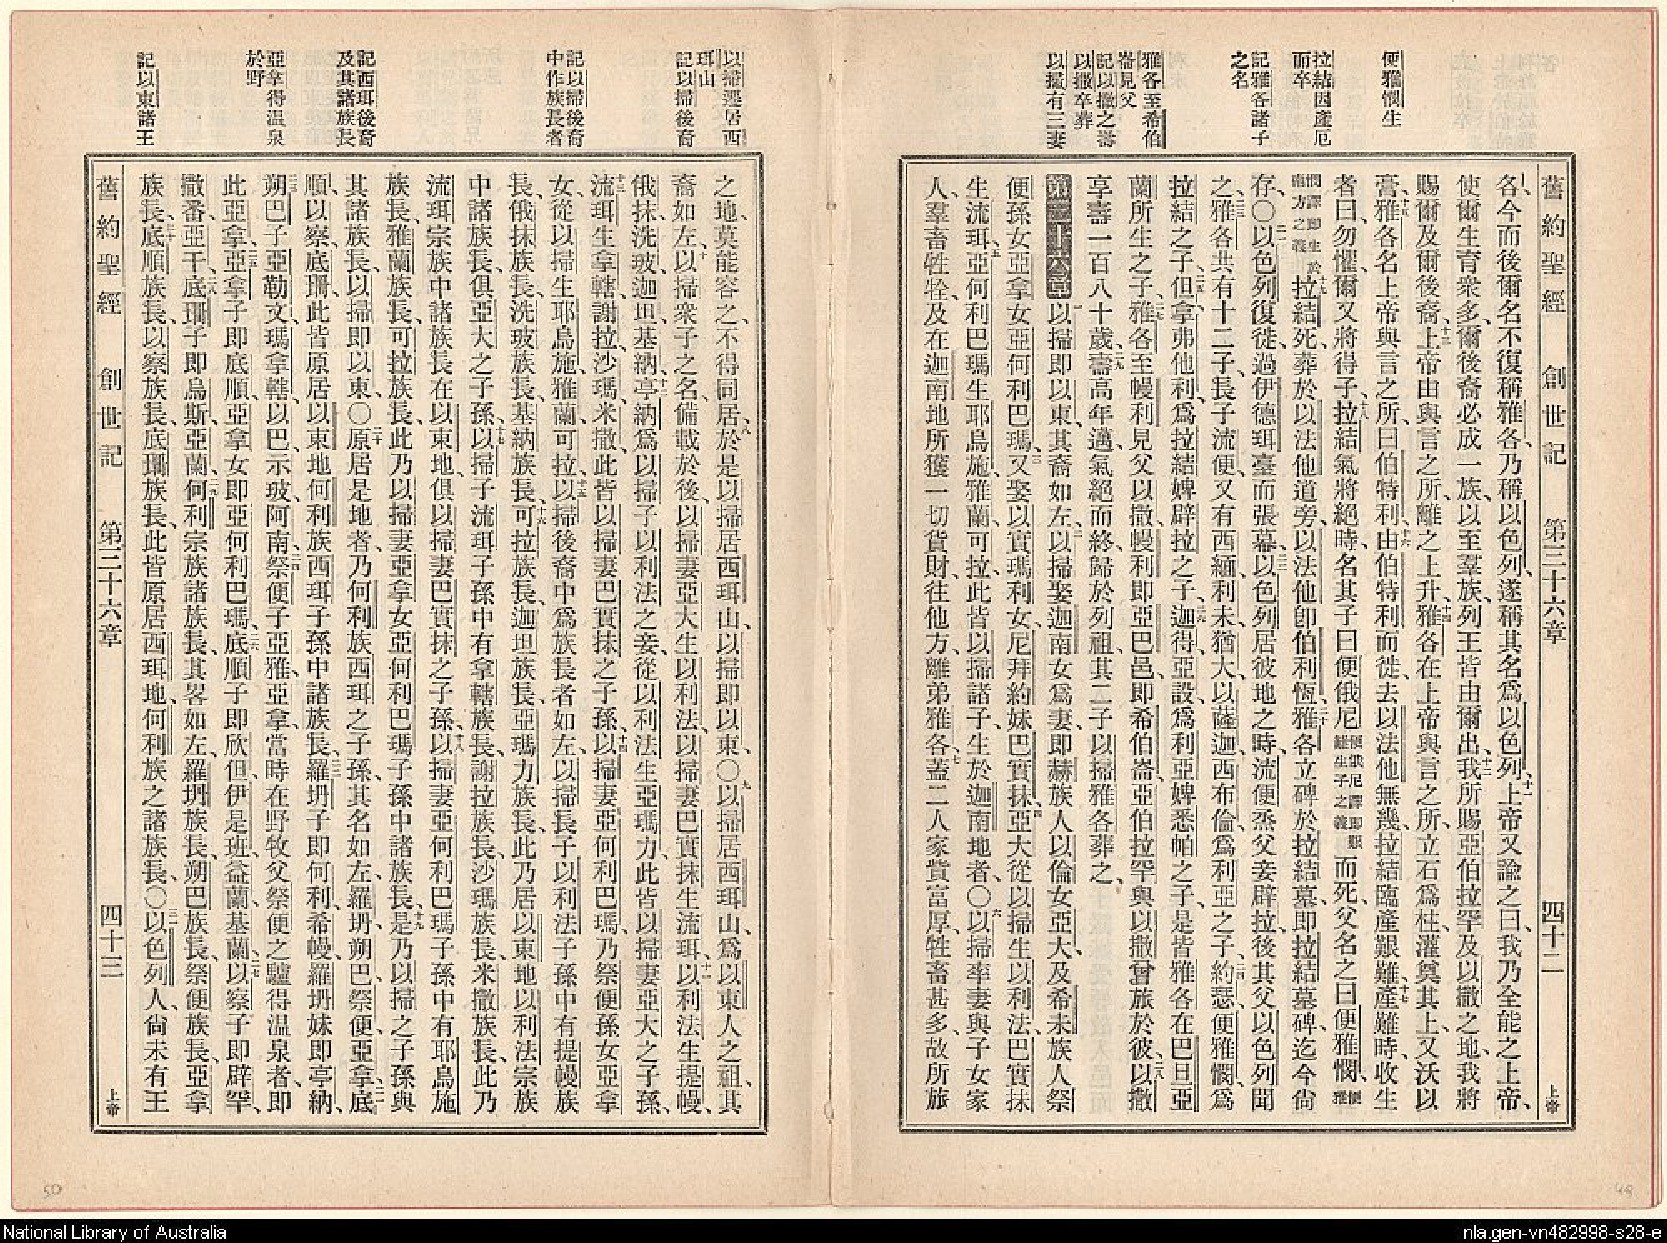 便雅憫生
拉結因產厄
而卒
記雅各諸子
之名
雅各至希伯
崙見父
記以撒之壽
以撒卒葬
以掃有三妻
舊約聖經 創世記 第三十六章 四十二 上帝
各、今而後爾名不復稱雅各、乃稱以色列、遂稱其名爲以色列、十一上帝又諭之曰、我乃全能之上帝、
使爾生育衆多、爾後裔必成一族、以至羣族、列王皆由爾出、十二我所賜亞伯拉罕及以撒之地、我將
賜爾及爾後裔、十三上帝由與言之所、離之上升、十四雅各在上帝與言之所、立石爲柱、灌奠其上、又沃以
膏、十五雅各名上帝與言之所、曰伯特利、十六由伯特利而徙、去以法他無幾、拉結臨產艱難、十七產難時、收生
者曰、勿懼、爾又將得子、十八拉結氣將絕時、名其子曰便俄尼、便俄尼譯即艱難生子之義而死、父名之曰便雅憫、便雅
憫譯即生於南方之義十九拉結死、葬於以法他道旁、以法他即伯利恆、二十雅各立碑於拉結墓、即拉結墓碑、迄今尙
存、〇二一以色列復徙、過伊德珥臺而張幕、二二以色列居彼地之時、流便烝父妾辟拉、後其父以色列聞
之、二三雅各共有十二子、長子流便、又有西緬利未猶大以薩迦西布倫爲利亞之子、二四約瑟便雅憫爲
拉結之子、二五但拿弗他利爲拉結婢辟拉之子、二六迦得亞設爲利亞婢悉帕之子、是皆雅各在巴旦亞
蘭所生之子、二七雅各至幔利見父以撒、幔利即亞巴邑、即希伯崙、亞伯拉罕與以撒曾旅於彼、二八以撒
享壽一百八十歲、二九壽高年邁、氣絕而終、歸於列祖、其二子以掃雅各葬之、
第三十六章 一以掃即以東、其裔如左、二以掃娶迦南女爲妻、即赫族人以倫女亞大、及希未族人祭
便孫女亞拿女亞何利巴瑪、三又娶以實瑪利女、尼拜約妹巴實抹、四亞大從以掃生以利法、巴實抹
生流珥、五亞何利巴瑪生耶烏施雅蘭可拉、此皆以掃諸子、生於迦南地者、〇六以掃率妻與子女家
人、羣畜牲牷、及在迦南地所獲一切貨財、往他方、離弟雅各、七蓋二人家貲富厚、牲畜甚多、故所旅
以掃遷居西
珥山
記以掃後裔
記以掃後裔
中作族長者
記西珥後裔
及其諸族長
亞拿得溫泉
於野
記以東諸王
之地、莫能容之、不得同居、八於是以掃居西珥山、以掃即以東、〇九以掃居西珥山、爲以東人之祖、其
裔如左、十以掃衆子之名、備載於後、以掃妻亞大生以利法、以掃妻巴實抹生流珥、十一以利法生提幔
俄抹洗玻迦坦基納、十二亭納爲以掃子以利法之妾、從以利法生亞瑪力、此皆以掃妻亞大之子孫、
十三流珥生拿轄謝拉沙瑪米撒、此皆以掃妻巴實抹之子孫、十四以掃妻亞何利巴瑪、乃祭便孫女亞拿
女、從以掃生耶烏施雅蘭可拉、十五以掃後裔中爲族長者如左、以掃長子以利法子孫中有提幔族
長、俄抹族長、洗玻族長、基納族長、十六可拉族長、迦坦族長、亞瑪力族長、此乃居以東地以利法宗族
中諸族長、俱亞大之子孫、十七以掃子流珥子孫中有拿轄族長、謝拉族長、沙瑪族長、米撒族長、此乃
流珥宗族中諸族長、在以東地、俱以掃妻巴實抹之子孫、十八以掃妻亞何利巴瑪子孫中有耶烏施
族長、雅蘭族長、可拉族長、此乃以掃妻亞拿女亞何利巴瑪子孫中諸族長、十九是乃以掃之子孫與
其諸族長、以掃即以東、〇二十原居是地者、乃何利族西珥之子孫、其名如左、羅坍朔巴祭便亞拿、二一底
順以察底珊、此皆原居以東地何利族西珥子孫中諸族長、二二羅坍子即何利希幔、羅坍妹即亭納、
二三朔巴子亞勒文瑪拿轄以巴示玻阿南、二四祭便子亞雅亞拿、當時在野牧父祭便之驢、得溫泉者、即
此亞拿、二五亞拿子即底順、亞拿女即亞何利巴瑪、二六底順子即欣但伊是班益蘭基蘭、二七以察子即辟罕
撒番亞干、二八底珊子即烏斯亞蘭、二九何利宗族諸族長、其畧如左、羅坍族長、朔巴族長、祭便族長、亞拿
族長、三十底順族長、以察族長、底珊族長、此皆原居西珥地何利族之諸族長、〇三一以色列人尙未有王
舊約聖經 創世記 第三十六章 四十三 上帝
50
49
National Library of Australia
nla.gen-vn482998-s28-e